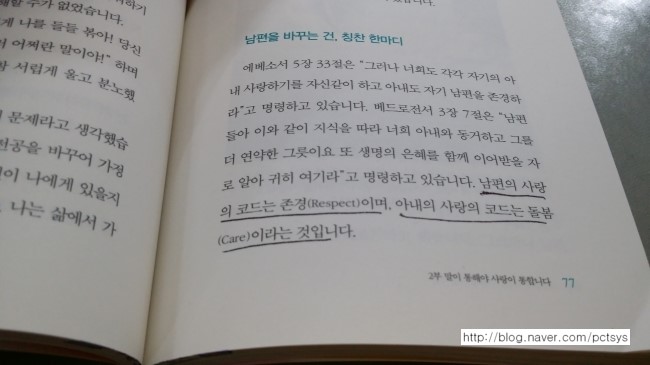 해할 수가 없었습니다.
게 나를 들들 볶아! 당신
어쩌란 말이야!" 하며
서럽게 울고 분노했
문제라고 생각했습
전공을 바꾸어 가정
이 나에게 있을지
나는 삶에서 가
있습니다.
남편을 바꾸는 건, 칭찬 한마디
에베소서 5장 33절은 "그러나 너희도 각각 자기의 아
내 사랑하기를 자신같이 하고 아내도 자기 남편을 존경하
라"고 명령하고 있습니다. 베드로전서 3장 7절은 "남편
들아 이와 같이 지식을 따라 너희 아내와 동거하고 그를
더 연약한 그릇이요 또 생명의 은혜를 함께 이어받을 자
로 알아 귀히 여기라"고 명령하고 있습니다. 남편의 사랑
의 코드는 존경(Respect)이며, 아내의 사랑의 코드는 돌봄
(Care)이라는 것입니다.
2부 말이 통해야 사랑이 통합니다 77
http://blog.naver.com/pctsys